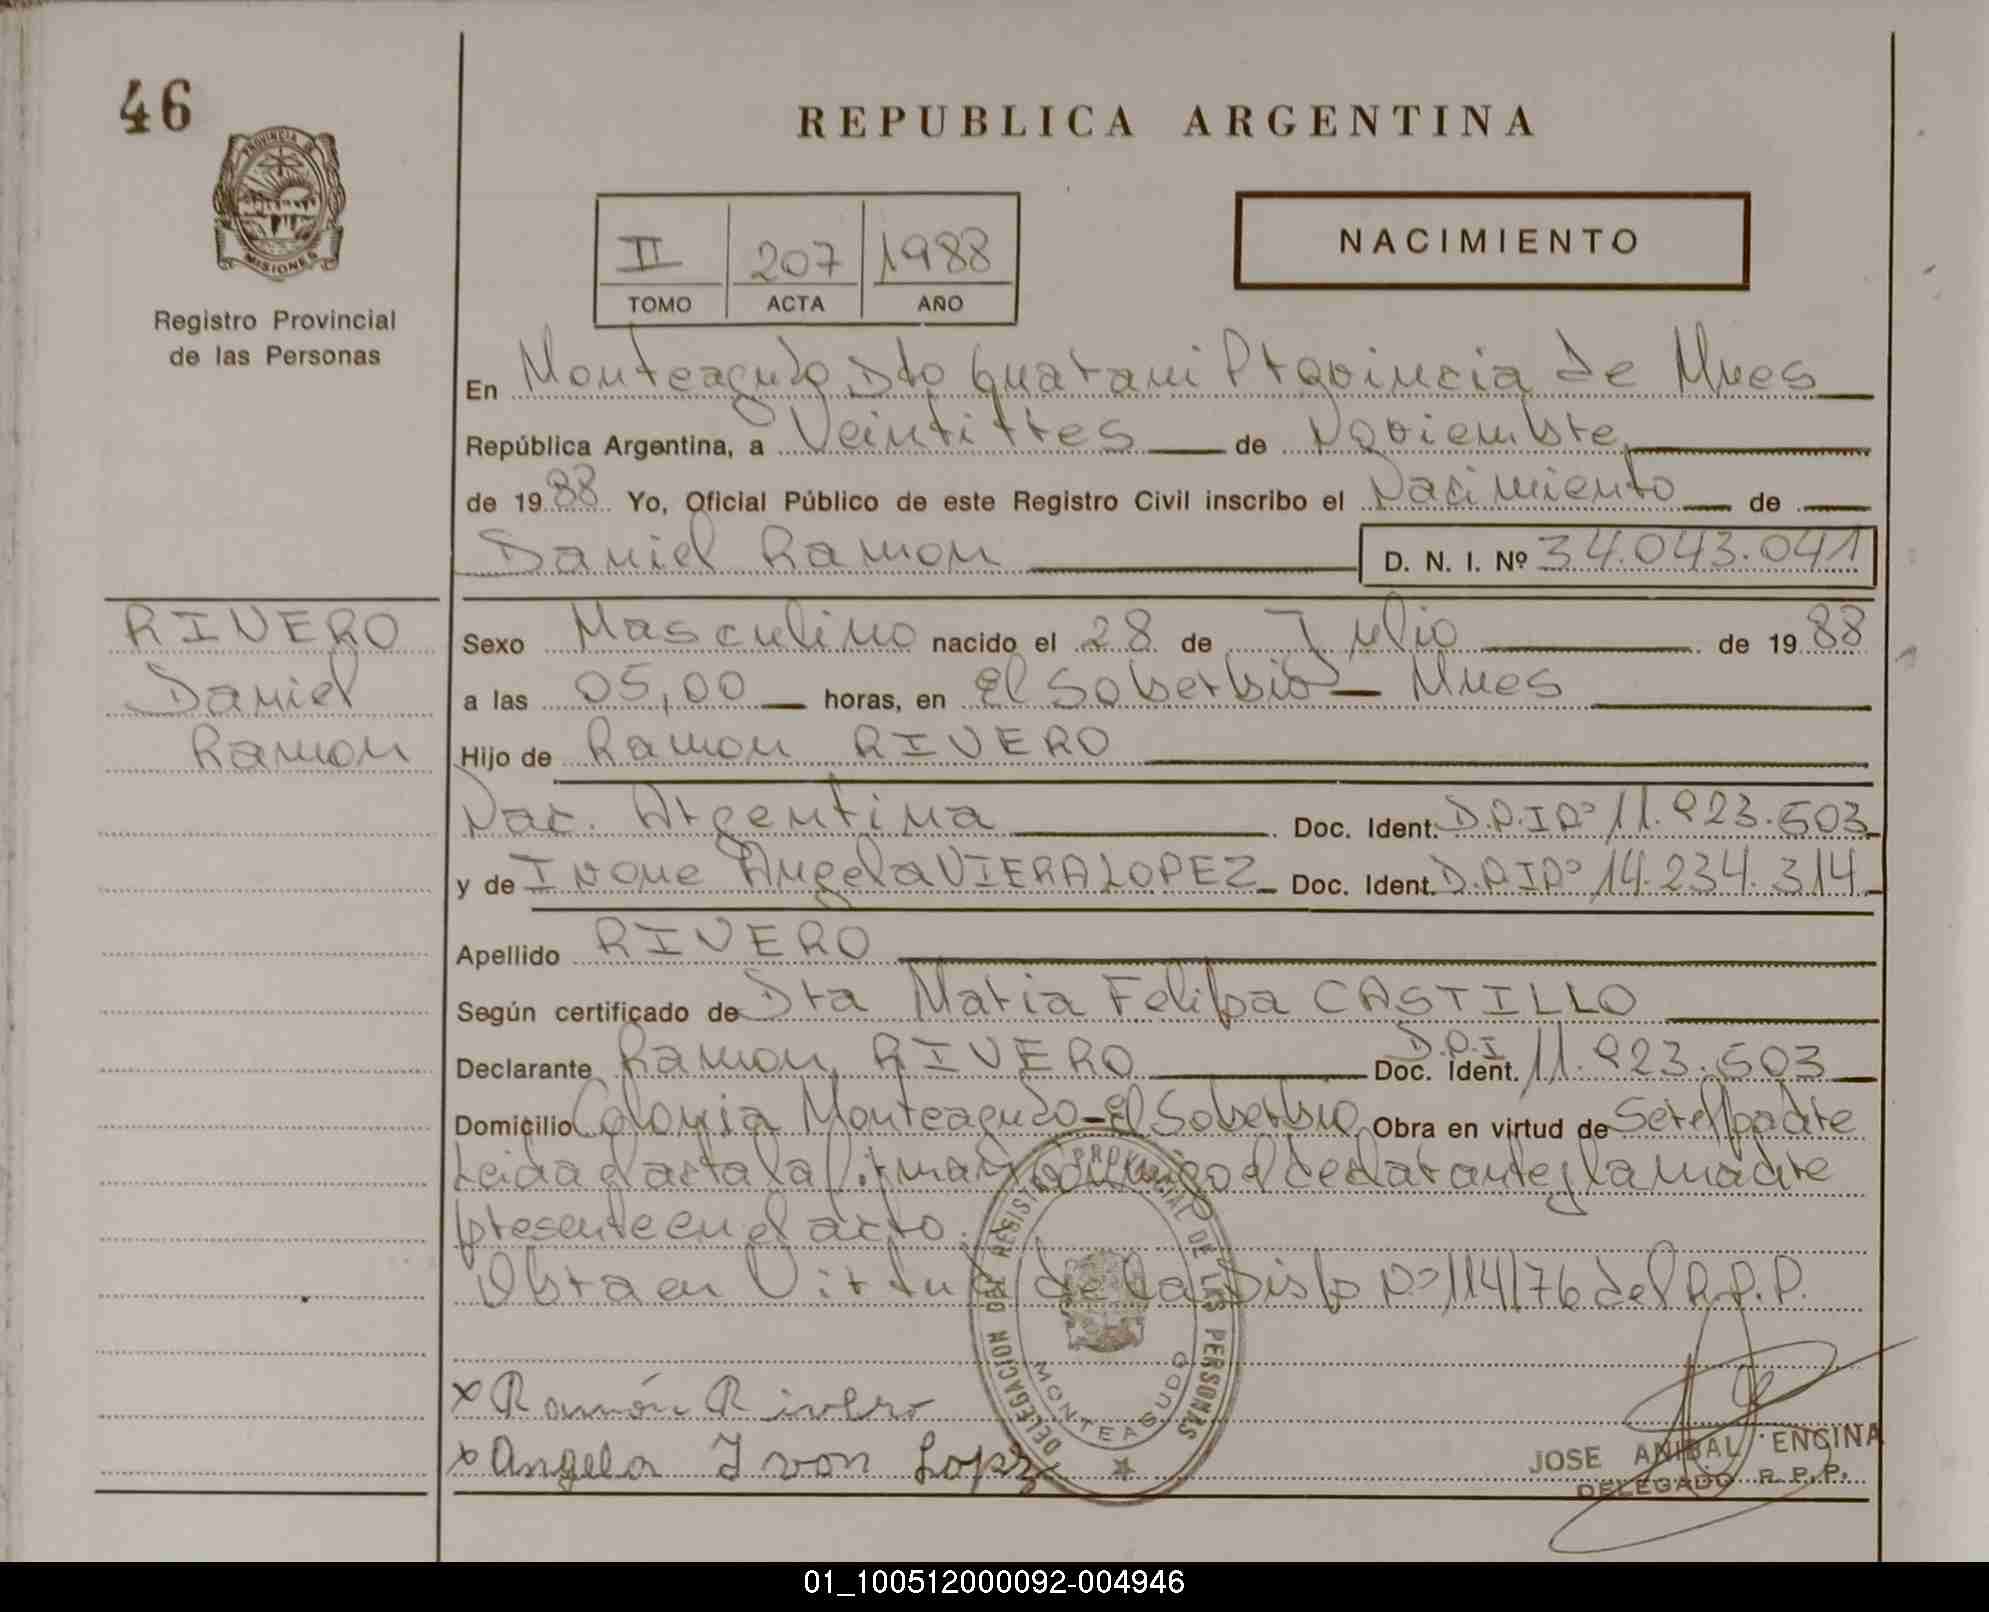 46
REPUBLICA ARGENTINA
PROVINCIA DE
MISIONES
Registro Provincial
de las Personas
II 207 1988
TOMO ACTA AÑO
NACIMIENTO
En Monteagudo Dto Guarani Provincia de Mnes
República Argentina, a Veintitres de Noviembre
de 1988 Yo, Oficial Público de este Registro Civil inscribo el Nacimiento de
Daniel Ramon D. N. I. Nº 34.043.041
RIVERO
Daniel
Ramon
Sexo Masculino nacido el 28 de Julio de 1988
a las 05,00 horas, en El Soberbio - Mnes
Hijo de Ramon RIVERO
Nac. Argentina Doc. Ident. D.N.I Nº 11.923.503
y de Ivone Angela VIERA LOPEZ Doc. Ident. D.N.I Nº 14.234.314
Apellido RIVERO
Según certificado de Dra Maria Felipa CASTILLO
Declarante Ramon RIVERO Doc. Ident. D.N.I 11.923.503
Domicilio Colonia Monteagudo - El Soberbio Obra en virtud de Ser el padre
Leida el acta la firman conmigo el declarante y la madre
presente en el acto.
Obra en Virtud de la Disp Nº 114/76 del R.P.P.
x Ramón Rivero
x Angela Ivon Lopez
DELEGACION DEL REGISTRO PROVINCIAL DE LAS PERSONAS
MONTEAGUDO
JOSE ANIBAL ENCINA
DELEGADO R. P. P.
01_100512000092-004946